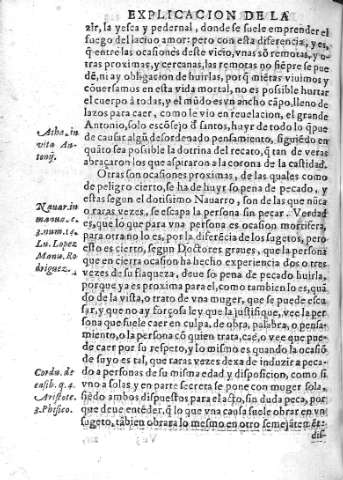 EXPLICACION DE LA
zir, la yesca y pedernal, donde se suele emprender el
fuego del laciuo amor: pero con esta diferencia, y es,
q̃ entre las ocasiones deste vicio, vnas sõ remotas, y o-
tras proximas, y cercanas, las remotas no siẽpre se pue
dẽ, ni ay obligacion de huirlas, porq̃ miẽtras viuimos y
cõuersamos en esta vida mortal, no es possible hurtar
el cuerpo à todas, y el mũdo es vn ancho cãpo, lleno de
lazos para caer, como le vio en reuelacion, el grande
Antonio, solo escõsejo d̃ santos, huyr de todo lo q̃ pue
de causar algũ desordenado pensamiento, siguiẽdo en
quãto sea possible la dotrina del recato, q̃ tan de veras
abraçaron los que aspiraron a la corona de la castidad.
Otras son ocasiones proximas, de las quales como
de peligro cierto, se ha de huyr so pena de pecado, y
estas segun el dotissimo Nauarro, son de las que nũca
o raras vezes, se escapa la persona sin pecar. Verdad
es, que lo que para vna persona es ocasion mortifera,
para otra no lo es, por la diferẽcia de los sugetos, pero
esto es cierto, segun Doctores graues, que la persona
que en cierta ocasion ha hecho experiencia dos o tres
vezes de su flaqueza, deue so pena de pecado huirla,
porque ya es proxima para el, como tambien lo es, quã
do de la vista, o trato de vna muger, que se puede escu
sar, y que no ay forçosa ley que la justifique, vee la per
sona que suele caer en culpa, de obra, palabra, o pensa-
miento, o la persona cõ quien trata, cae, o vee que pue-
de caer por su respeto, y lo mismo es quando la ocasiõ
de suyo es tal, que raras vezes dexa de induzir a peca-
do a personas de su misma edad y disposicion, como si
vno a solas, y en parte secreta se pone con muger sola,
siẽdo ambos dispuestos para el acto, sin duda peca, por
que deue entẽder, q̃ lo que vna causa suele obrar en vn
sugeto, tãbien obrara lo mismo en otro semejãte. Et-
dis-
Atha. in
vita An-
tonij.
Nauar. in
manua. c.
3. num. 14.
Lu. Lopez
Manu. Ro
driguez.
Cordu. de
casib. q. 4.
Aristote.
3. Phisico.